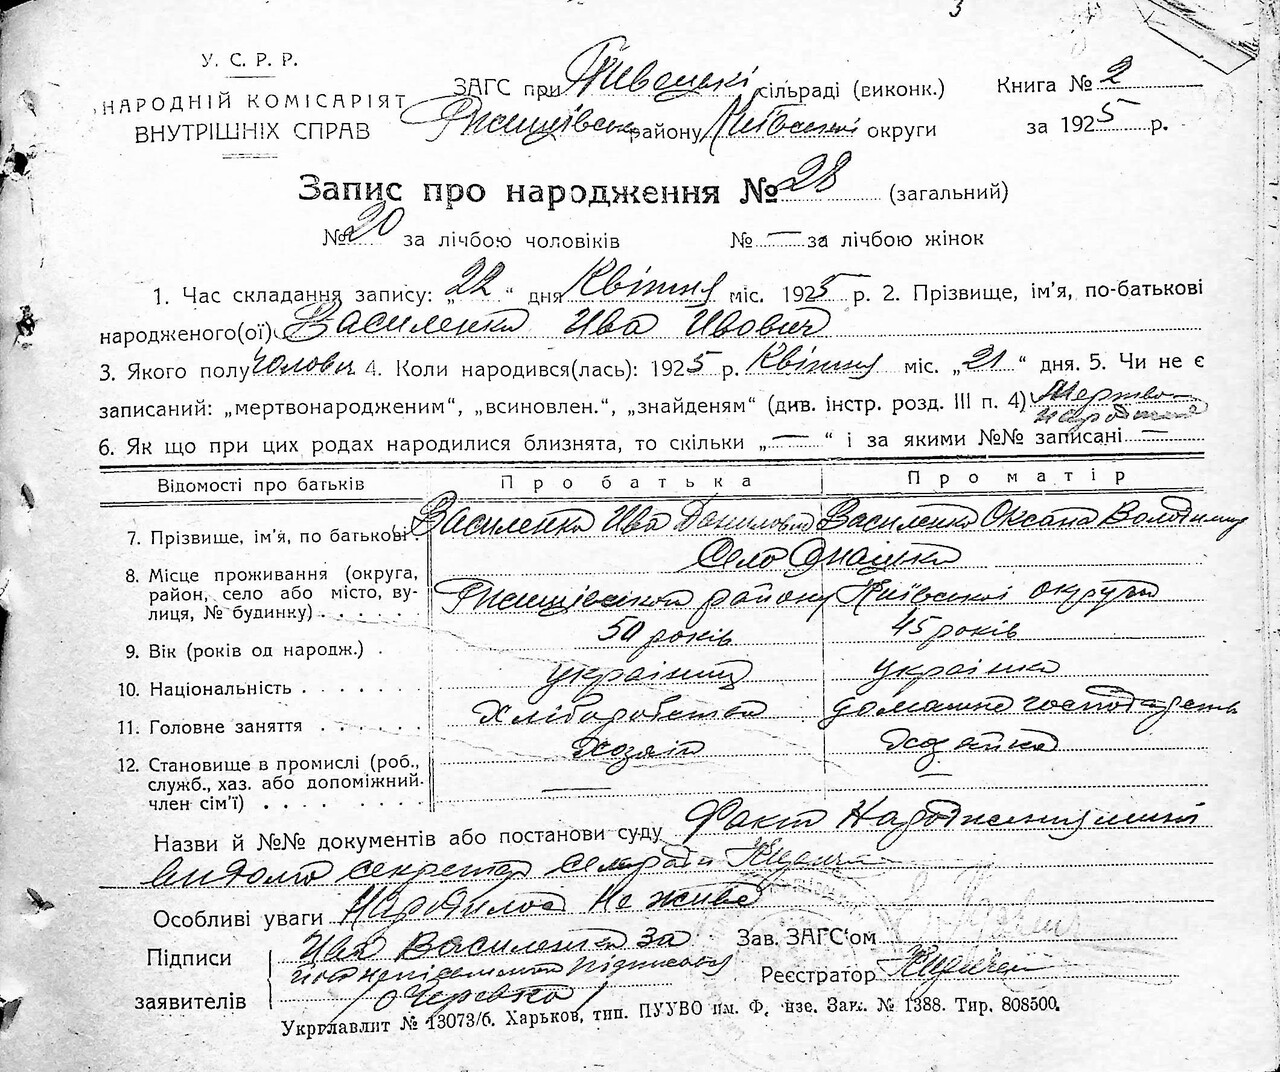 У. С. Р. Р.
НАРОДНІЙ КОМІСАРІЯТ
ВНУТРІШНІХ СПРАВ
ЗАГС при сільраді (виконк.)
району Київської округи
Книга № 2
за 1925 р.
Запис про народження № 28 (загальний)
№ 20 за лічбою чоловіків № — за лічбою жінок
1. Час складання запису: „22“ дня Квітня міс. 1925 р. 2. Прізвище, ім'я, по-батькові
народженого(ої) Василенко Ива Ивович
3. Якого полу Чолові 4. Коли народився(лась): 1925 р. Квітня міс. „21“ дня. 5. Чи не є
записаний: „мертвонародженим“, „всиновлен.“, „знайденям“ (див. інстр. розд. III п. 4) Мертво
6. Як що при цих родах народилися близнята, то скільки „—“ і за якими №№ записані —
Відомості про батьків Про батька Про матір
7. Прізвище, ім'я, по батькові Василенко Ива Василенко Оксана
8. Місце проживання (округа, Село
район, село або місто, ву- району Київської округи
лиця, № будинку)
9. Вік (років од народж.) 50 років 45 років
10. Національність українец українка
11. Головне заняття Хліборобство домашнє
12. Становище в промислі (роб., Хозяїн Хозяйка
служб., хаз. або допоміжний — —
член сім'ї)
Назви й №№ документів або постанови суду Факт Народження мині
видомо секретар сельради
Особливі уваги Народилось не живе
Підписи
заявителів
Ива Василенко за
Зав. ЗАГС'ом
Реєстратор
Укрглавлит № 13073/б. Харьков, тип. ПУУВО им. Ф. Зак. № 1388. Тир. 808500.
3